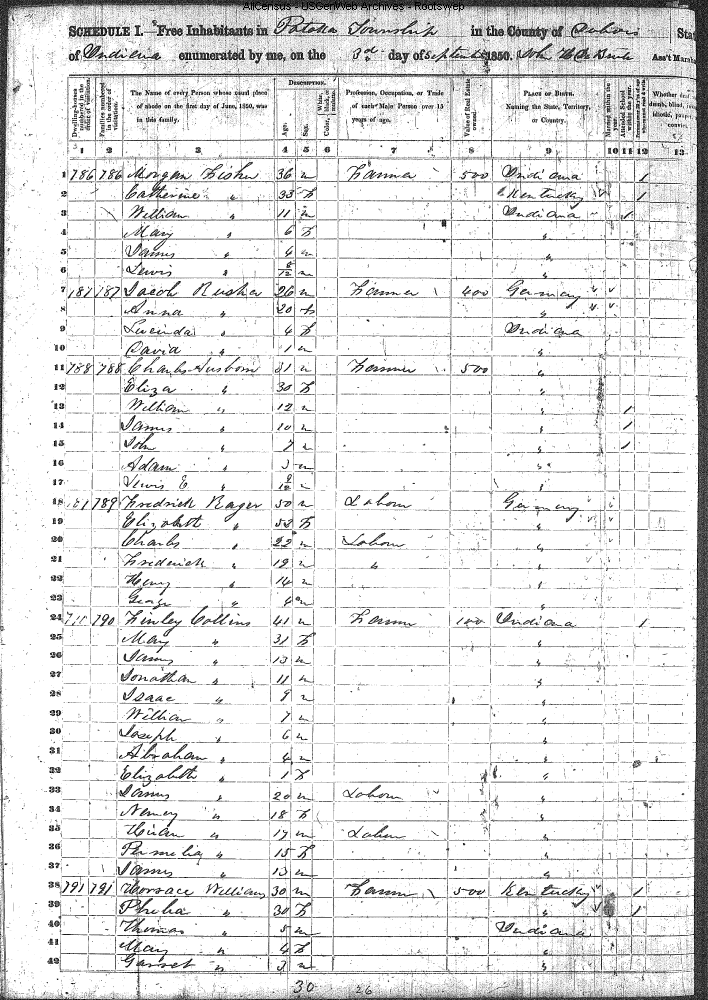 AllCensus - USGenWeb Archives - Rootsweb
SCHEDULE I.—Free Inhabitants in Patoka Township in the County of Dubois Sta
of Indiana enumerated by me, on the 3d day of September 1850. Ass't Marsha
Dwelling-houses numbered in the order of visitation.
Families numbered in the order of visitation.
The Name of every Person whose usual place of abode on the first day of June, 1850, was in this family.
DESCRIPTION.
Age.
Sex.
Color, White, black, or mulatto.
Profession, Occupation, or Trade of each Male Person over 15 years of age.
Value of Real Estate owned.
PLACE OF BIRTH. Naming the State, Territory, or Country.
Married within the year.
Attended School within the year.
Whether deaf
1 2 3 4 5 6 7 8 9 10 11 12 13
1 786 786 Morgan Fisher 36 m Farmer 500 Indiana 1
2 Catherine " 33 f Kentucky 1
3 William " 11 m Indiana 1
4 Mary " 6 f "
5 James " 4 m "
6 Lewis " 8/12 m "
7 787 787 Jacob 26 m Farmer 400 Germany
8 Anna " 20 f "
9 Lucinda " 4 f Indiana
10 David " 1 m "
11 788 788 Charles 31 m Farmer 500 "
12 Eliza " 30 f "
13 William " 12 m " 1
14 James " 10 m " 1
15 John " 7 m " 1
16 Adam " 3 m "
17 Lewis E " m "
18 789 Fredrick Rager 50 m Labour Germany
19 Elizabeth " 53 f "
20 Charles " 22 m Labour "
21 Frederick " 19 m " "
22 Henry " 14 m "
23 George " 4 m "
24 790 Finley Collins 41 m Farmer 100 Indiana 1
25 Mary " 31 f "
26 James " 13 m "
27 Jonathan " 11 m "
28 Isaac " 9 m "
29 William " 7 m "
30 Joseph " 6 m "
31 Abraham " 4 m "
32 Elizabeth " 1 f "
33 James " 20 m Labour "
34 Nancy " 18 f "
35 Hiram " 17 m Labour "
36 Permelia " 15 f "
37 James " 13 m "
38 791 791 Horrace Williams 30 m Farmer 500 Kentucky 1
39 Pheba " 30 f " 1
40 Thomas " 5 m Indiana
41 Mary " 4 f "
42 Garret " 3 m "
30 26